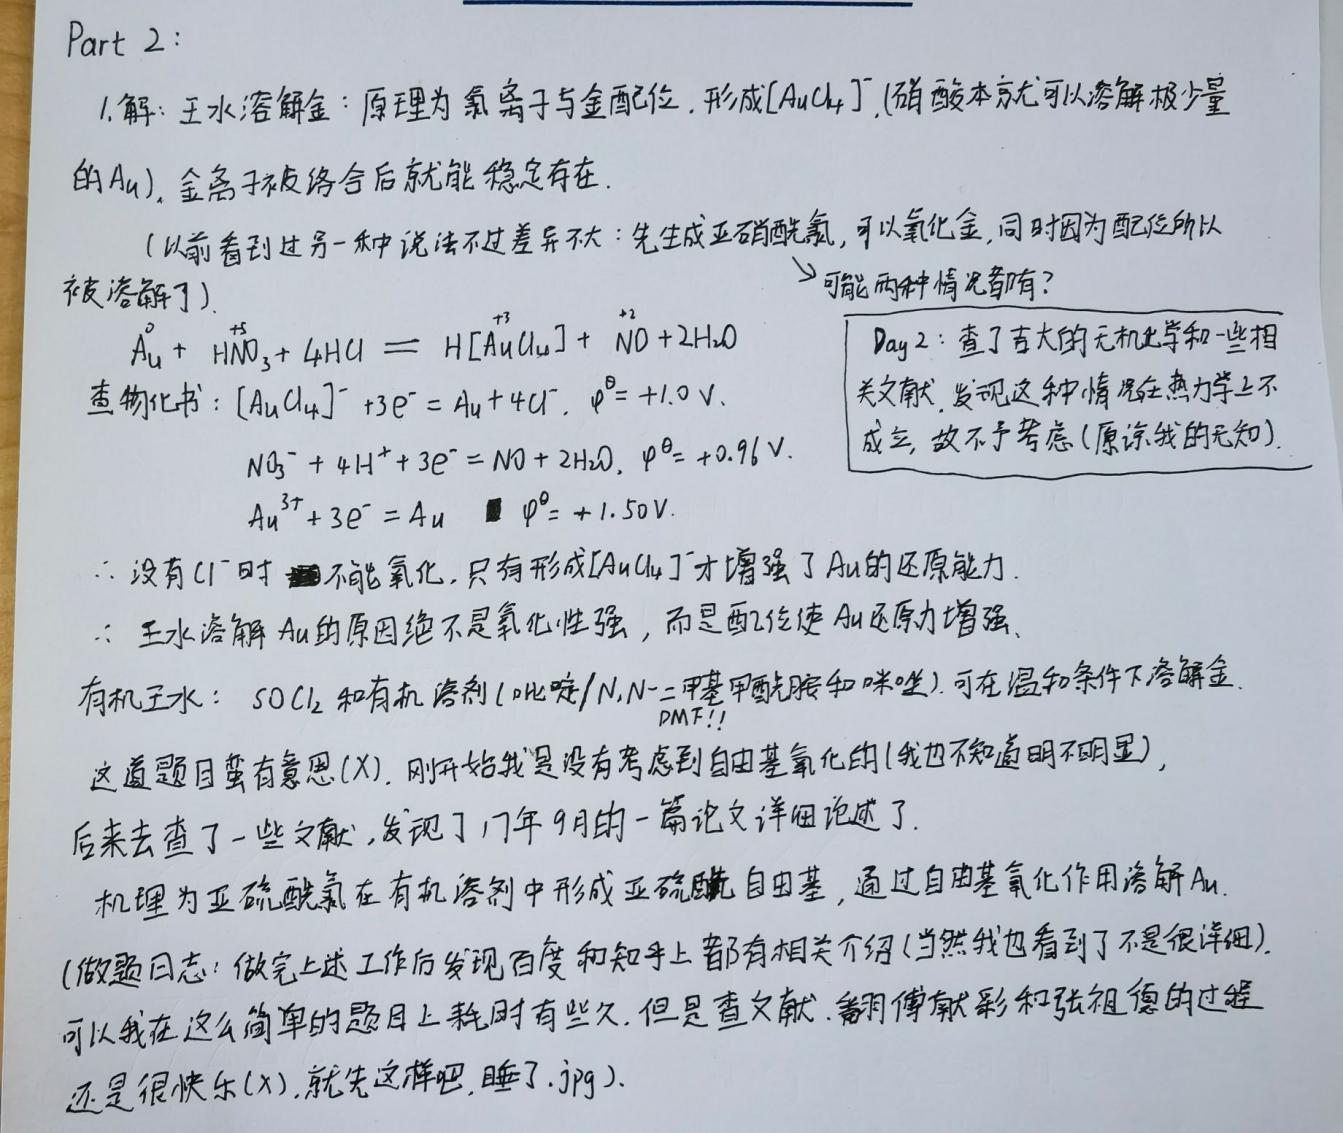 Part 2:
1.解:王水溶解金:原理为氯离子与金配位,形成[AuCl₄]⁻,(硝酸本就可以溶解极少量
的Au)。金离子被络合后就能稳定存在.
(以前看到过另一种说法不过差异不大:先生成亚硝酰氯,可以氧化金,同时因为配位所以
被溶解了).
↘可能两种情况都有?
0 +5 +3 +2
Au + HNO₃ + 4HCl = H[AuCl₄] + NO + 2H₂O
查物化书:[AuCl₄]⁻ +3e⁻ = Au + 4Cl⁻. φ^θ = +1.0 V.
NO₃⁻ + 4H⁺ + 3e⁻ = NO + 2H₂O, φ^θ = +0.96 V.
Au³⁺ + 3e⁻ = Au φ^θ = +1.50V.
Day 2:查了吉大的无机化学和一些相
关文献,发现这种情况在热力学上不
成立,故不予考虑(原谅我的无知).
∴ 没有Cl⁻时不能氧化,只有形成[AuCl₄]⁻才增强了Au的还原能力.
∴ 王水溶解Au的原因绝不是氧化性强,而是配位使Au还原力增强、
有机王水: SOCl₂和有机溶剂(吡啶/N,N-二甲基甲酰胺和咪唑).可在温和条件下溶解金.
DMF!!
这道题目蛮有意思(X).刚开始我是没有考虑到自由基氧化的(我也不知道明不明显),
后来去查了一些文献,发现了17年9月的一篇论文详细论述了.
机理为亚硫酰氯在有机溶剂中形成亚硫酰自由基,通过自由基氧化作用溶解Au.
(做题日志:做完上述工作后发现百度和知乎上都有相关介绍(当然我也看到了不是很详细).
可以我在这么简单的题目上耗时有些久.但是查文献、翻傅献彩和张祖德的过程
还是很快乐(X).就先这样吧,睡了.jpg).